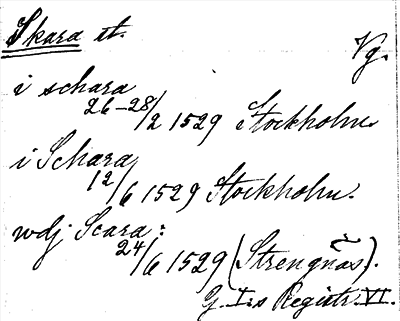 Skara st. Vg.
i schara
26-28/2 1529 Stockholm.
i Schara
12/6 1529 Stockholm.
wdj Scara:
24/6 1529 (Strengnäs).
G. I:s Registr. VI.